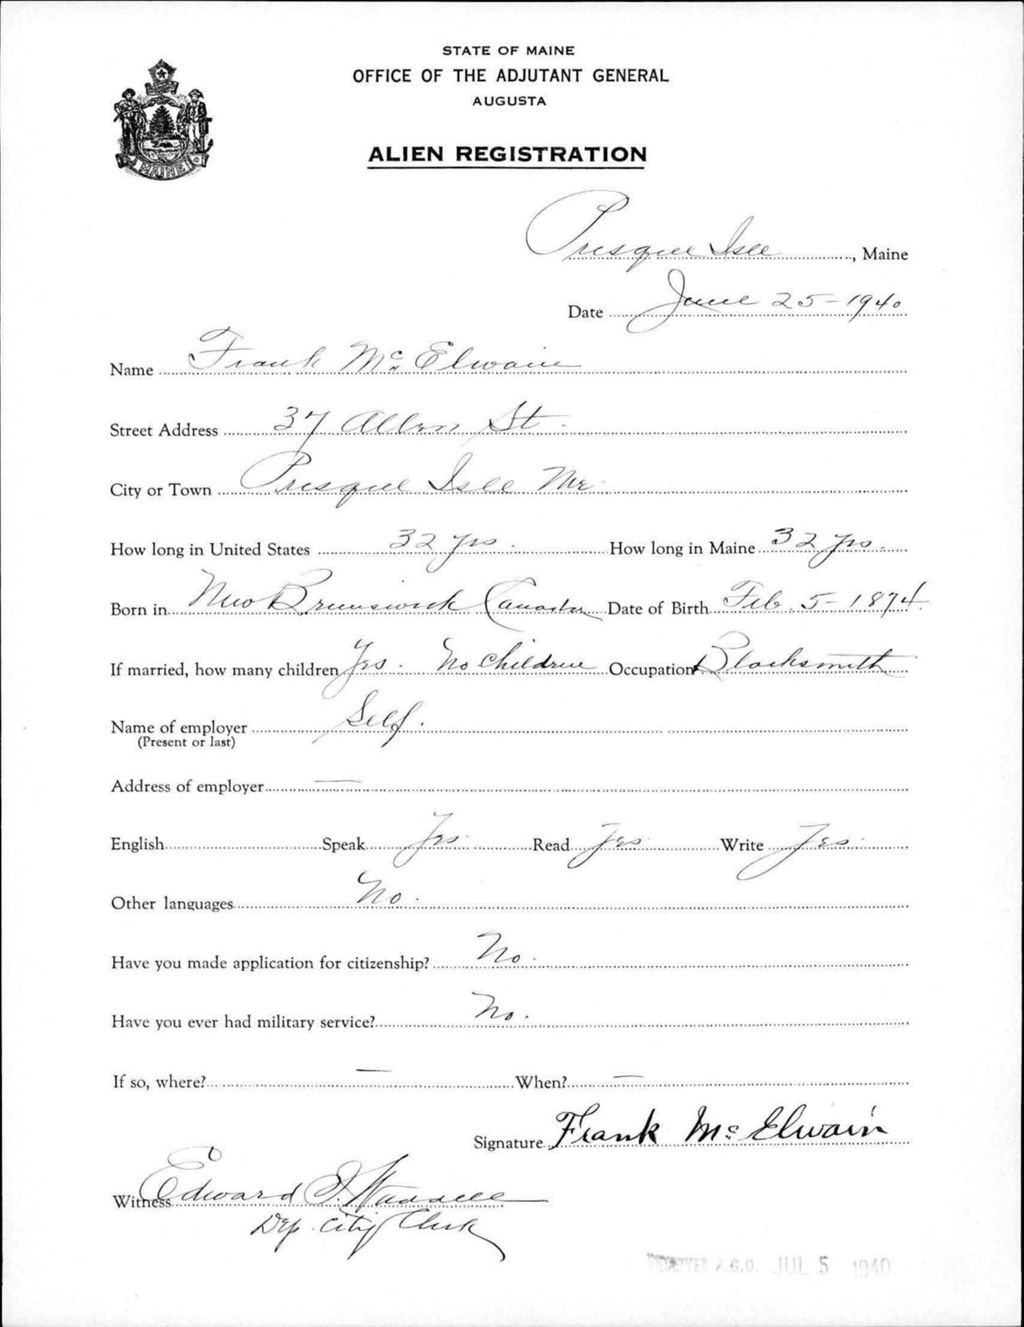 STATE OF MAINE
OFFICE OF THE ADJUTANT GENERAL
AUGUSTA
MAINE
ALIEN REGISTRATION
Presque Isle, Maine
Date June 25-1940
Name Frank Mc Elwaine
Street Address 37 Allen St.
City or Town Presque Isle Me.
How long in United States 32 yrs. How long in Maine 32 yrs.
Born in New Brunswick Canada Date of Birth Feb. 5-1874.
If married, how many children Yes. No Children Occupation Blacksmith
Name of employer Self.
(Present or last)
Address of employer —
English Speak Yes. Read Yes Write Yes.
Other languages No.
Have you made application for citizenship? No.
Have you ever had military service? No.
If so, where? — When? —
Signature Frank Mc Elwain
Witness Edward
Dep. City Clerk
RECEIVED A.G.O. JUL 5 1940